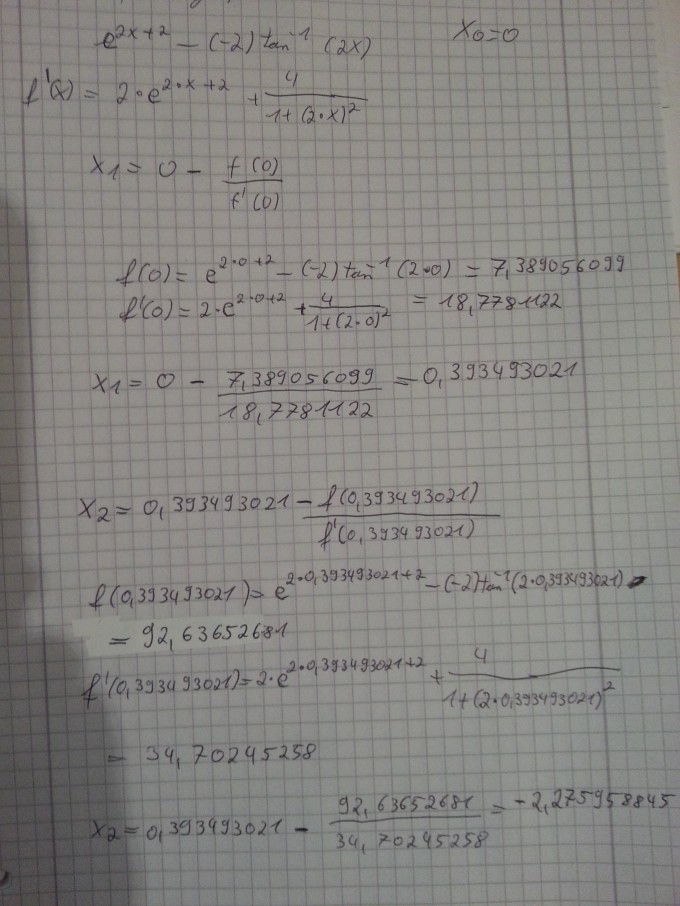 e^{2x+2} - (-2) tan^{-1} (2x)    x_0=0
f'(x) = 2·e^{2·x+2} + \frac{4}{1+(2·x)^2}
x_1 = 0 - \frac{f(0)}{f'(0)}
f(0) = e^{2·0+2} - (-2) tan^{-1} (2·0) = 7,389056099
f'(0) = 2·e^{2·0+2} + \frac{4}{1+(2·0)^2} = 18,7781122
x_1 = 0 - \frac{7,389056099}{18,7781122} = 0,393493021
x_2 = 0,393493021 - \frac{f(0,393493021)}{f'(0,393493021)}
f(0,393493021) = e^{2·0,393493021+2} - (-2) tan^{-1} (2·0,393493021)
= 92,63652681
f'(0,393493021) = 2·e^{2·0,393493021+2} + \frac{4}{1+(2·0,393493021)^2}
= 34,70245258
x_2 = 0,393493021 - \frac{92,63652681}{34,70245258} = -2,275958845